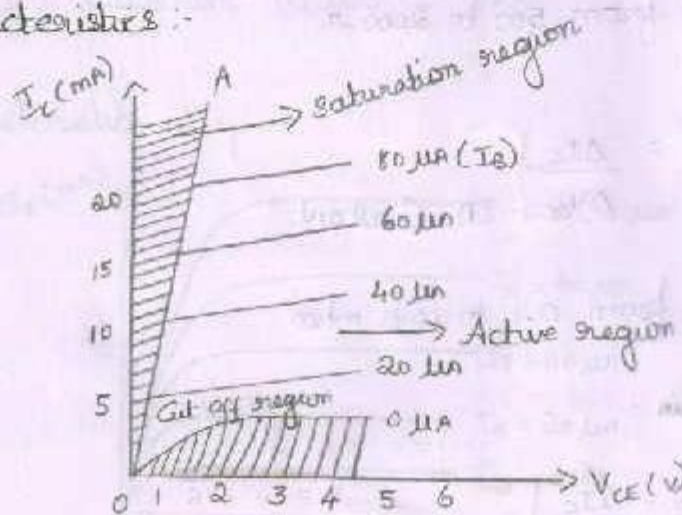 cteristics :-
I_C (mA)
A
Saturation region
80 μA (I_B)
20
60 μA
15
40 μA
10
Active region
20 μA
5
Cut off region
0 μA
0 1 2 3 4 5 6
V_CE (v)